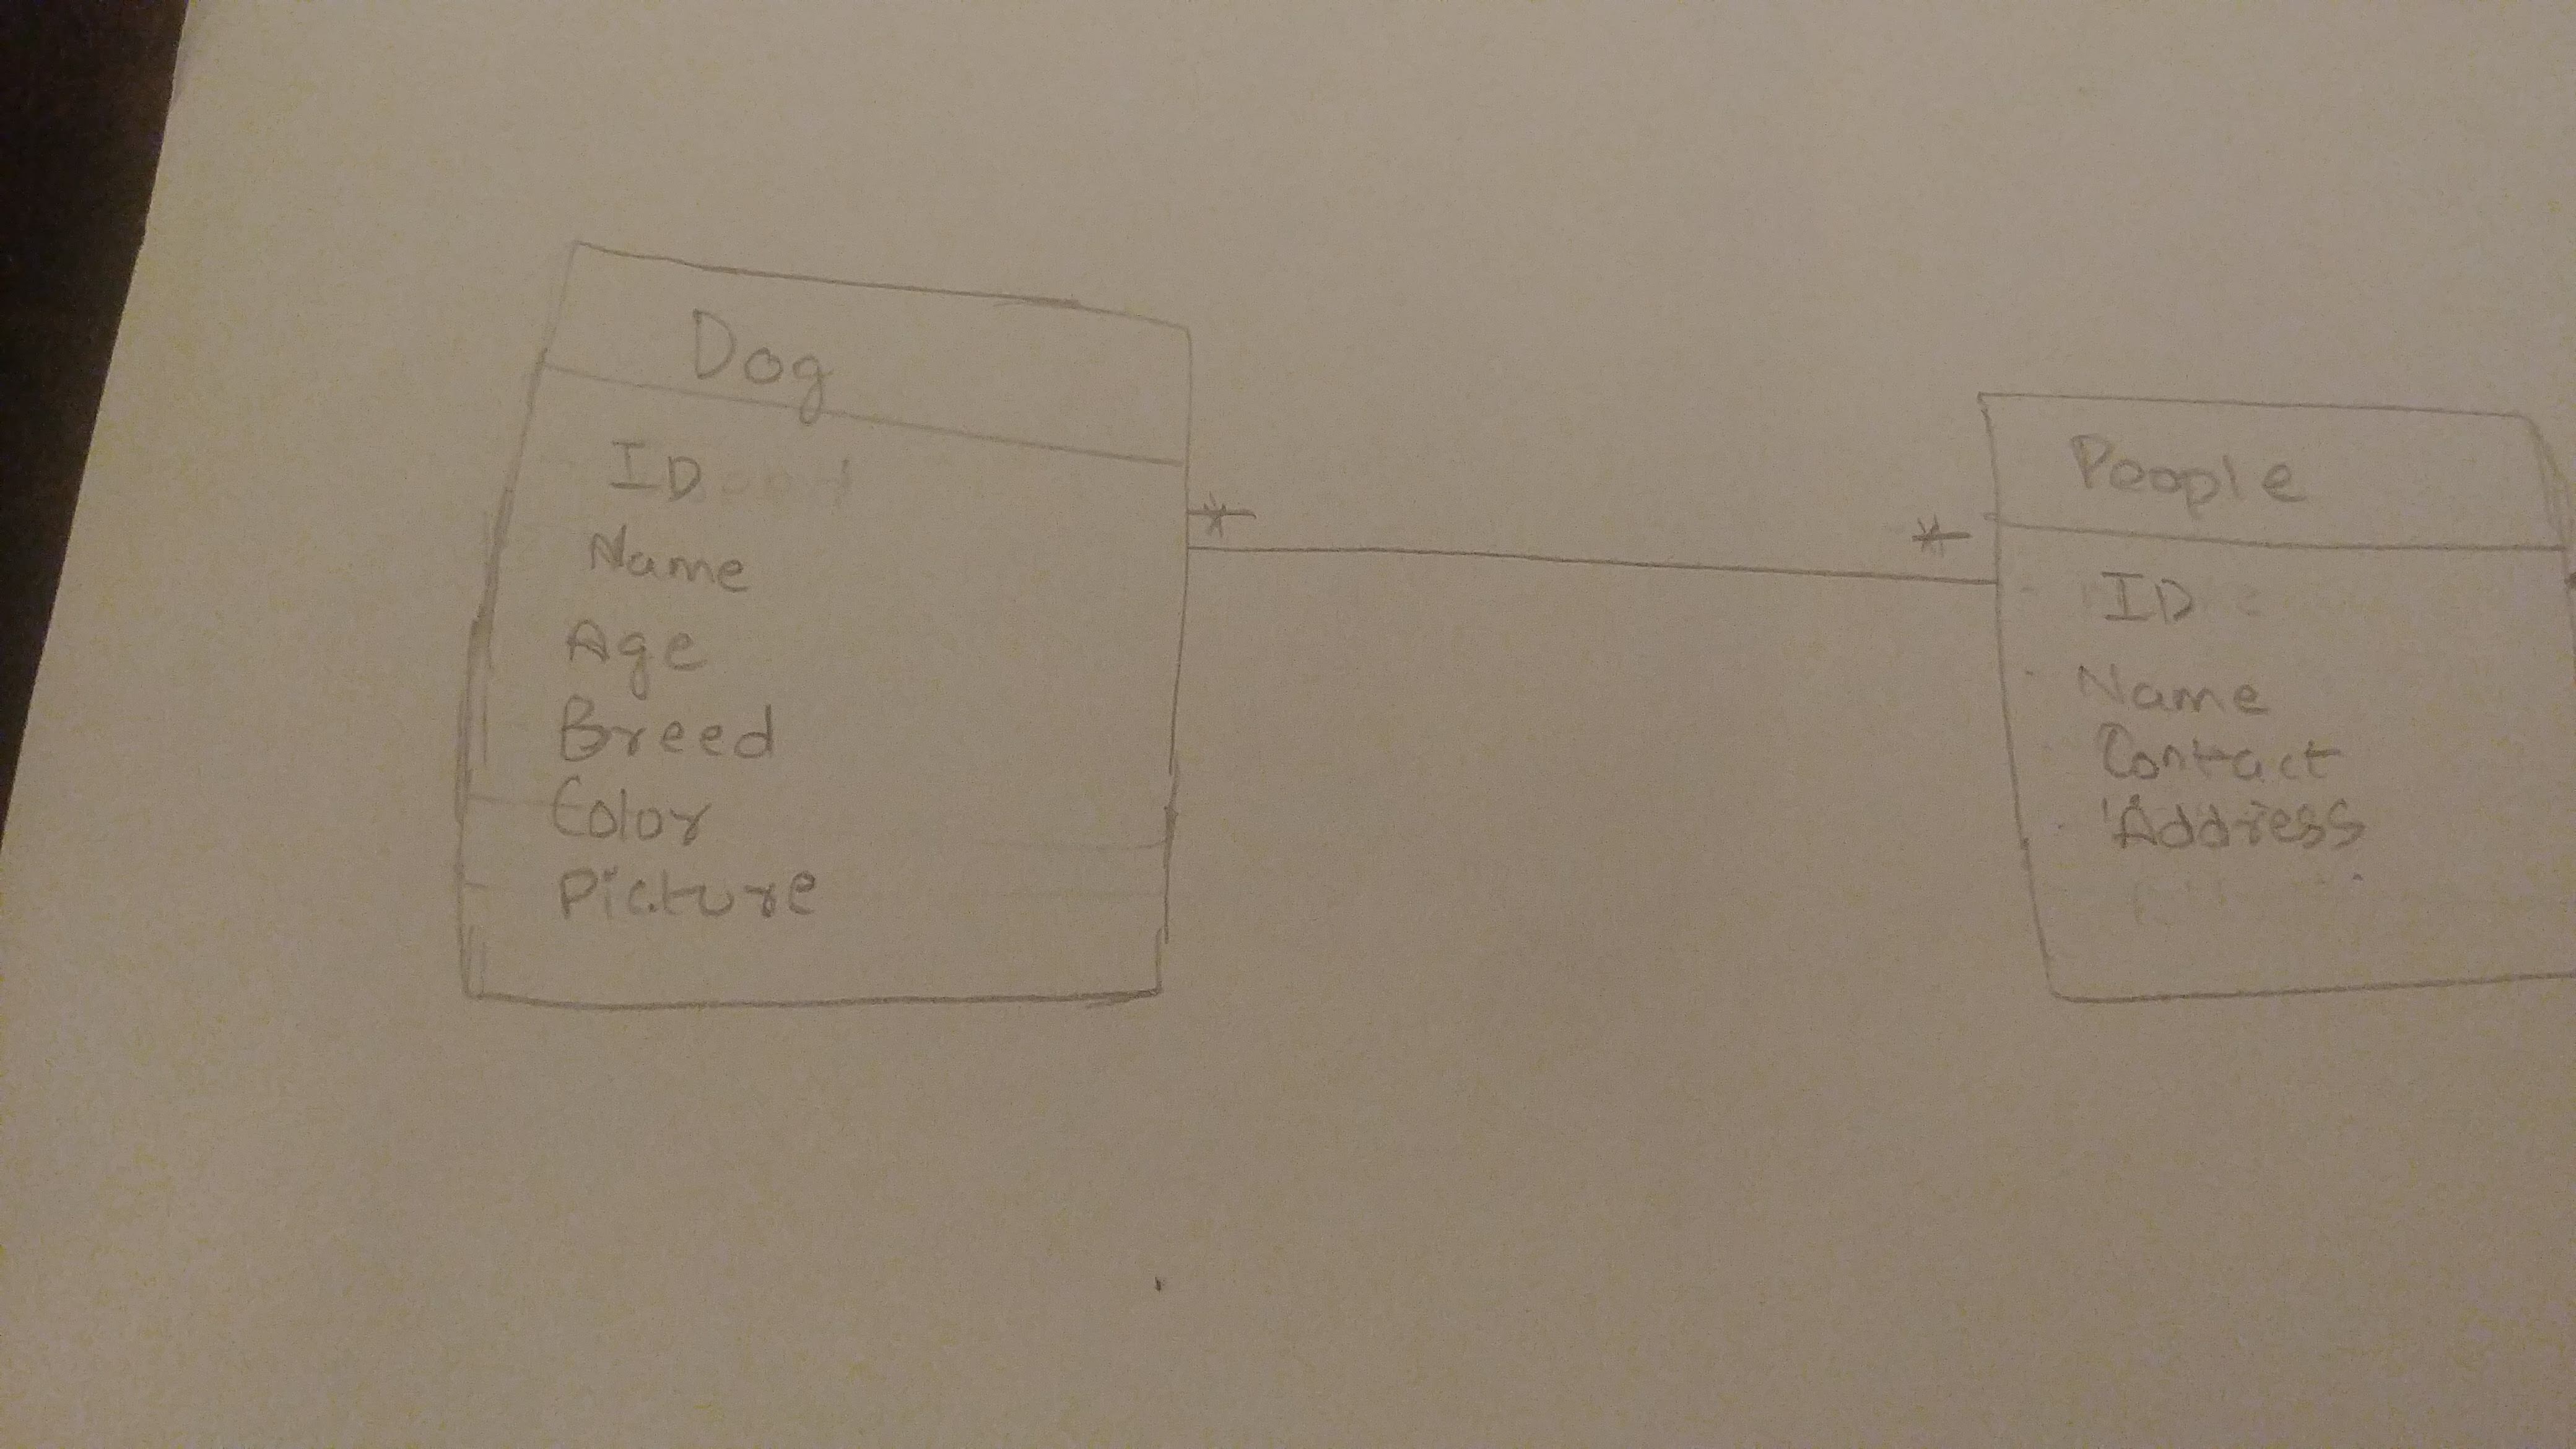 Dog
ID
Name
Age
Breed
Color
Picture
*
*
People
ID
Name
Contact
Address